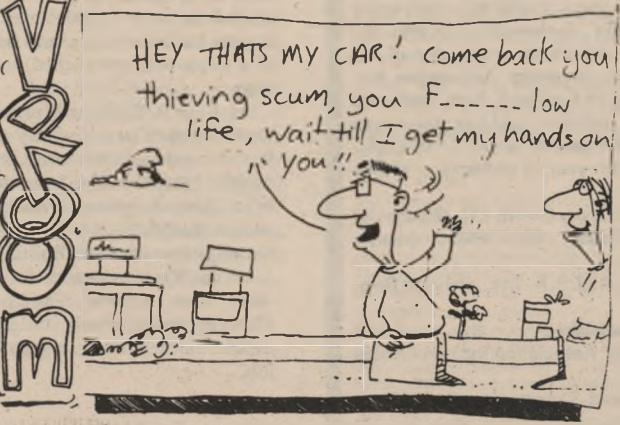 VROOM
HEY THATS MY CAR! come back you
thieving scum, you F______ low
life, wait till I get my hands on
you!!